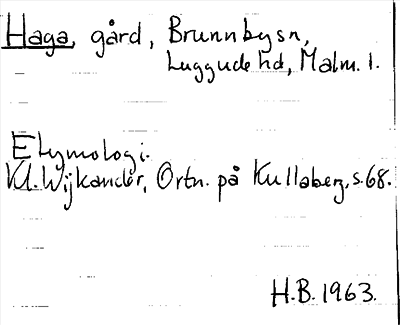 Haga, gård, Brunnbysn,
Luggude hd, Malm. l.
Etymologi.
Kl. Wijkander, Ortn. på Kullaberg, s. 68.
H.B. 1963.